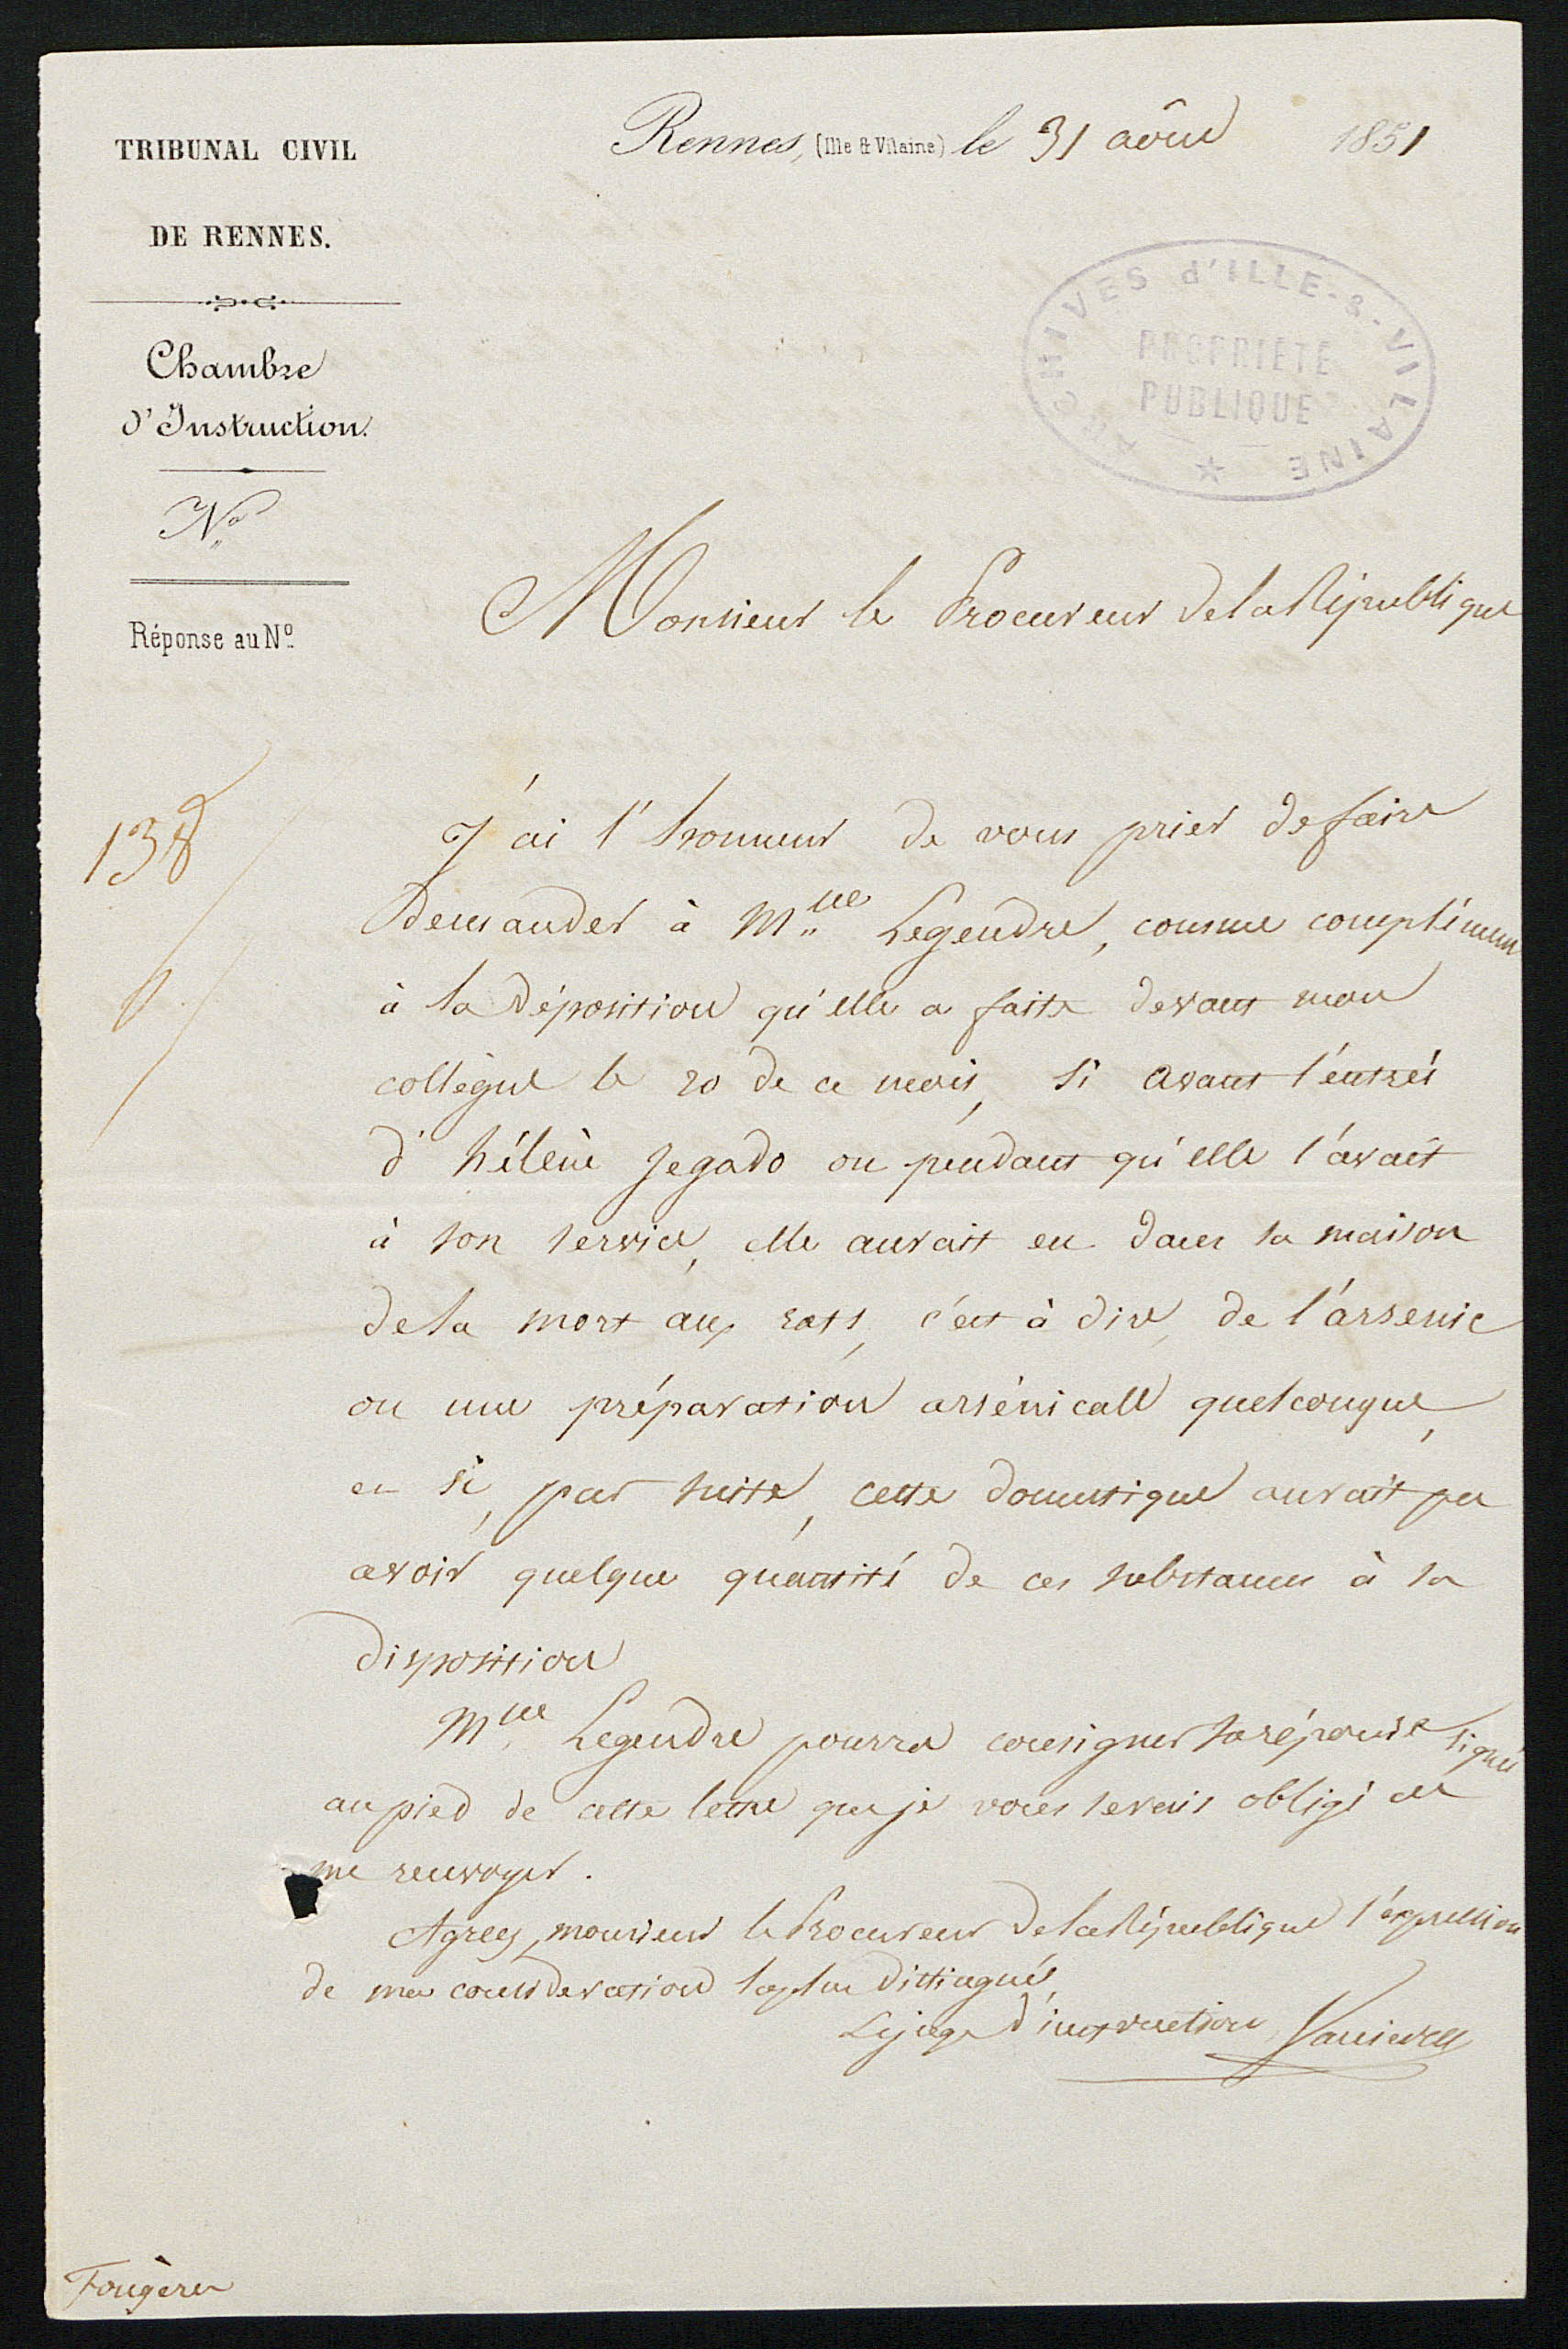 TRIBUNAL CIVIL
DE RENNES.
Chambre
d'Instruction.
Nº
Réponse au Nº
Rennes, (Ille & Vilaine) le 31 août 1851
ARCHIVES d'ILLE-&-VILAINE
PROPRIETE
PUBLIQUE
Monsieur le Procureur de la République
138
J'ai l'honneur de vous prier de faire
demander à Mlle Legendre, comme complément
à la déposition qu'elle a faite devant mon
collègue le 20 de ce mois, si avant l'entrée
d'hélène Jegado ou pendant qu'elle l'avait
à son service, elle aurait eu dans sa maison
de la mort aux rats, c'est à dire, de l'arsenic
ou une préparation arsénicale quelconque,
et si, par suite, cette domestique aurait pu
avoir quelque quantité de ces substances à sa
disposition
Mlle Legendre pourra consigner sa réponse signée
au pied de cette lettre que je vous serais obligé de
me renvoyer.
Agréez, monsieur le Procureur de la République l'expression
de ma considération la plus distinguée,
Le juge d'instruction
Fougères